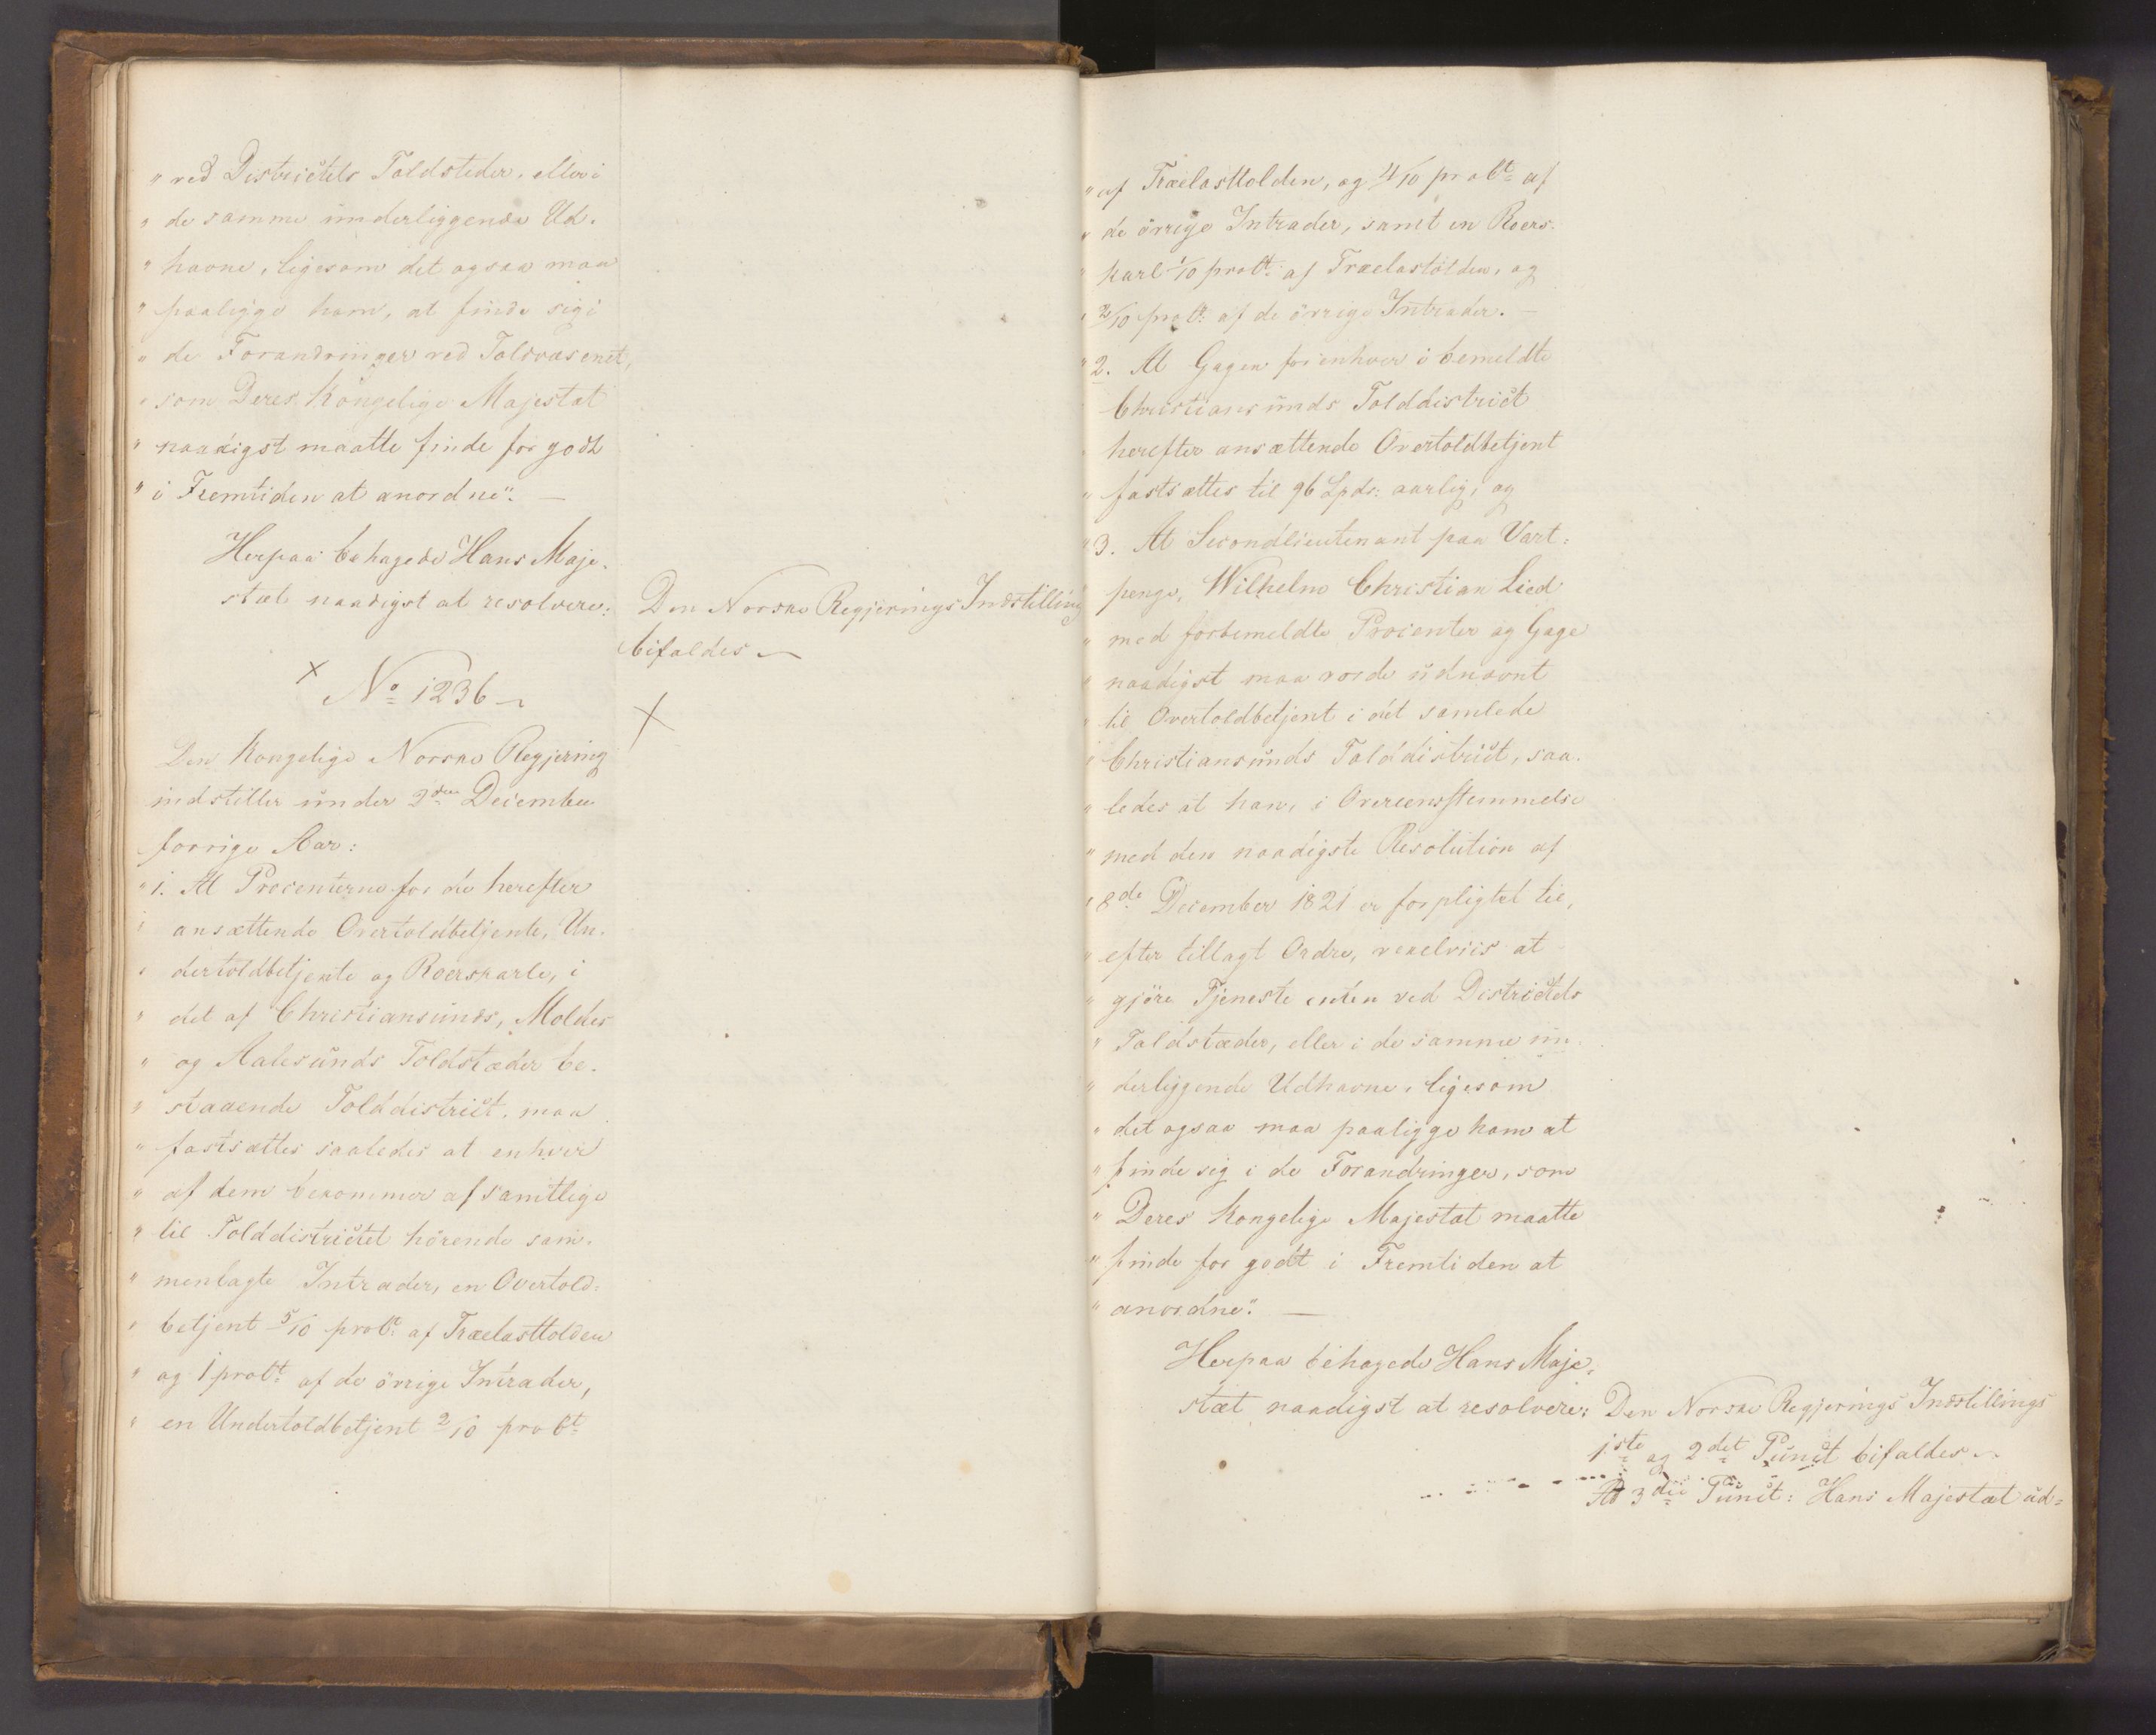 " ved Districtets Toldsteder, eller i
" de samme underliggende Ud-
" havne, ligesom det ogsaa maa
" paaligge ham, at finde sig i
" de Forandringer ved Toldvæsenet,
" som Deres Kongelige Majestæt
" naadigst maatte finde for godt
" i Fremtiden at anordne". —
Herpaa behagede Hans Maje-
stæt naadigst at resolvere:
Den Norske Regjerings Indstilling
bifaldes
No 1236
Den Kongelige Norske Regjering
indstiller under 2den December
forrige Aar:
" 1. At Procenterne for de herefter
" ansættende Overtoldbetjente, Un-
" dertoldbetjente og Roerskarle, i
" det af Christiansunds, Moldes
" og Aalesunds Toldstæder be-
" staaende Tolddistrict, maa
" fastsættes saaledes at enhver
" af dem bekommer af samtlige
" til Tolddistrictet hörende sam-
" menlagte Intrader, en Overtold-
" betjent 5/10 proCt: af Trælasttolden
" og 1 proCt: af de övrige Intrader,
" en Undertoldbetjent 2/10 proCt
" af Trælasttolden, og 4/10 proCt: af
" de övrige Intrader, samt en Roers-
" karl 1/10 proCt: af Trælasttolden, og
" 2/10 proCt: af de övrige Intrader. —
" 2. At Gagen for enhver i bemeldte
Christiansunds Tolddistrict
" herefter ansættende Overtoldbetjent
" fastsættes til 96 Spds: aarlig; og
" 3. At Secondlieutenant paa Vart-
" penge, Wilhelm Christian Lied
" med forbemeldte Procenter og Gage
" naadigst maa vorde udnævnt
" til Overtoldbetjent i det samlede
" Christiansunds Tolddistrict, saa-
" ledes at han, i Overeensstemmelse
" med den naadigste Resolution af
" 8de December 1821 er forpligtet til,
" efter tillagt Ordre, vexelviis at
" gjöre Tjeneste enten ved Districtets
" Toldstæder, eller i de samme un-
" derliggende Udhavne, ligesom
" det ogsaa maa paaligge ham at
" finde sig i de Forandringer, som
" Deres Kongelige Majestæt maatte
" finde for godt i Fremtiden at
" anordne". —
Herpaa behagede Hans Maje-
stæt naadigst at resolvere:
Den Norske Regjerings Indstillings
1ste og 2det Punct bifaldes
Ad 3die Punct: Hans Majestæt ud-